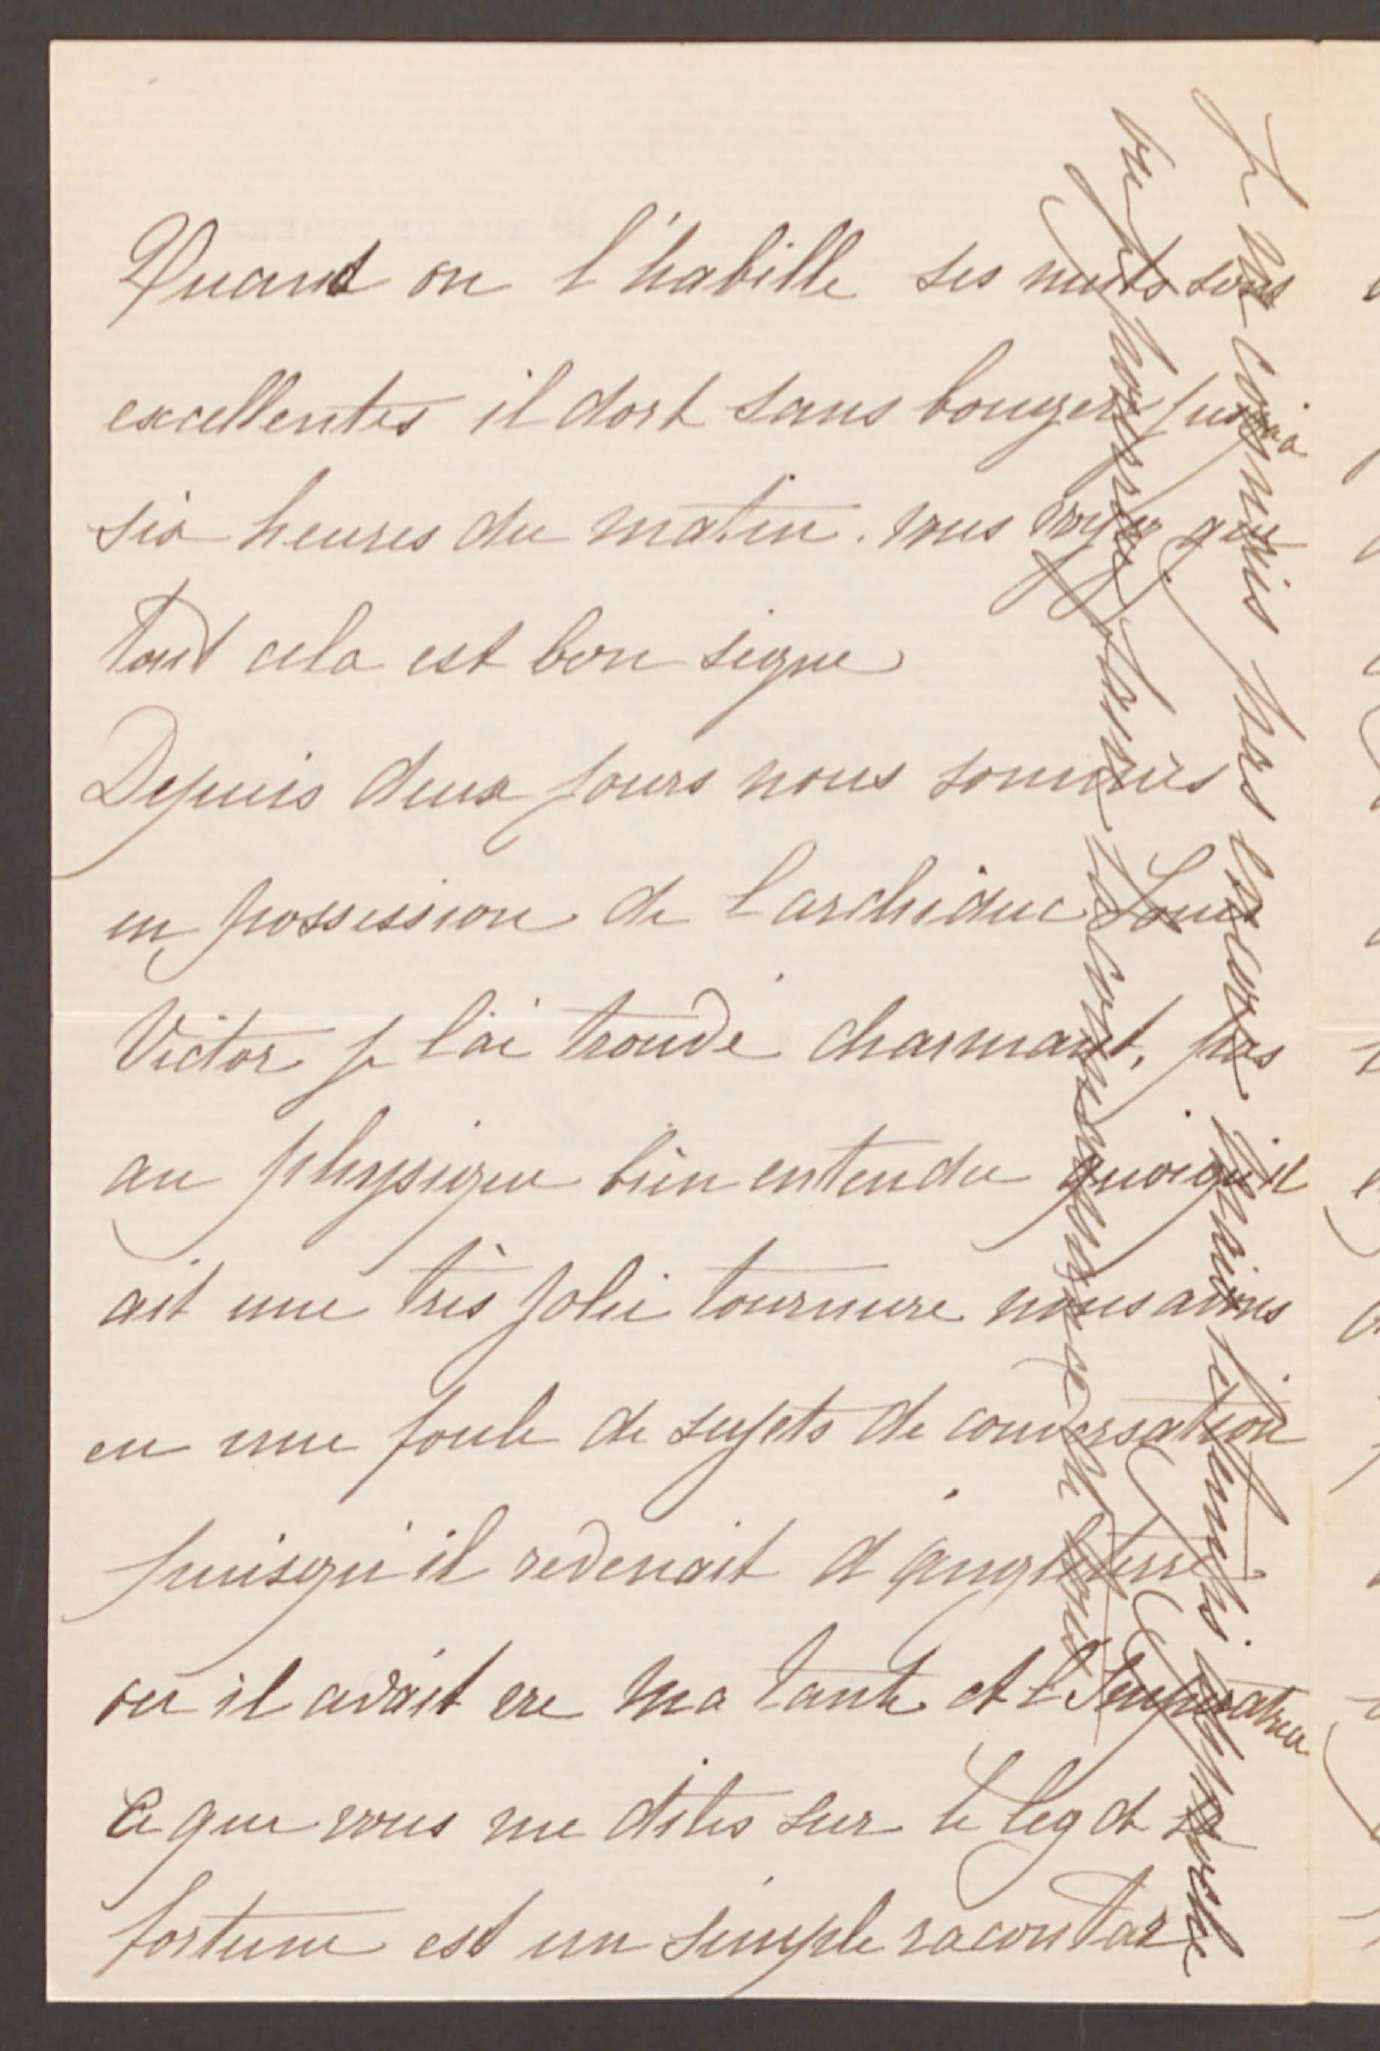 Quand on l'habille ses nuits sont
excellentes il dort sans bouger jusqu'à
six heures du matin. vous voyez que
tout cela est bon signe
Depuis deux jours nous sommes
en possession de l'archiduc Louis
Victor je l'ai trouvé charmant, pas
au physique bien entendu quoiqu'il
ait une très jolie tournure nous avons
eu une foule de sujets de conversation
puisqu'il revenait d'angleterre
ou il avait vu ma tante et l'Impératrice
Ce que vous me dites sur le leg de sa
fortune est un simple racontar
Je ne connais pas encore mais j'entends
faire la connaissance